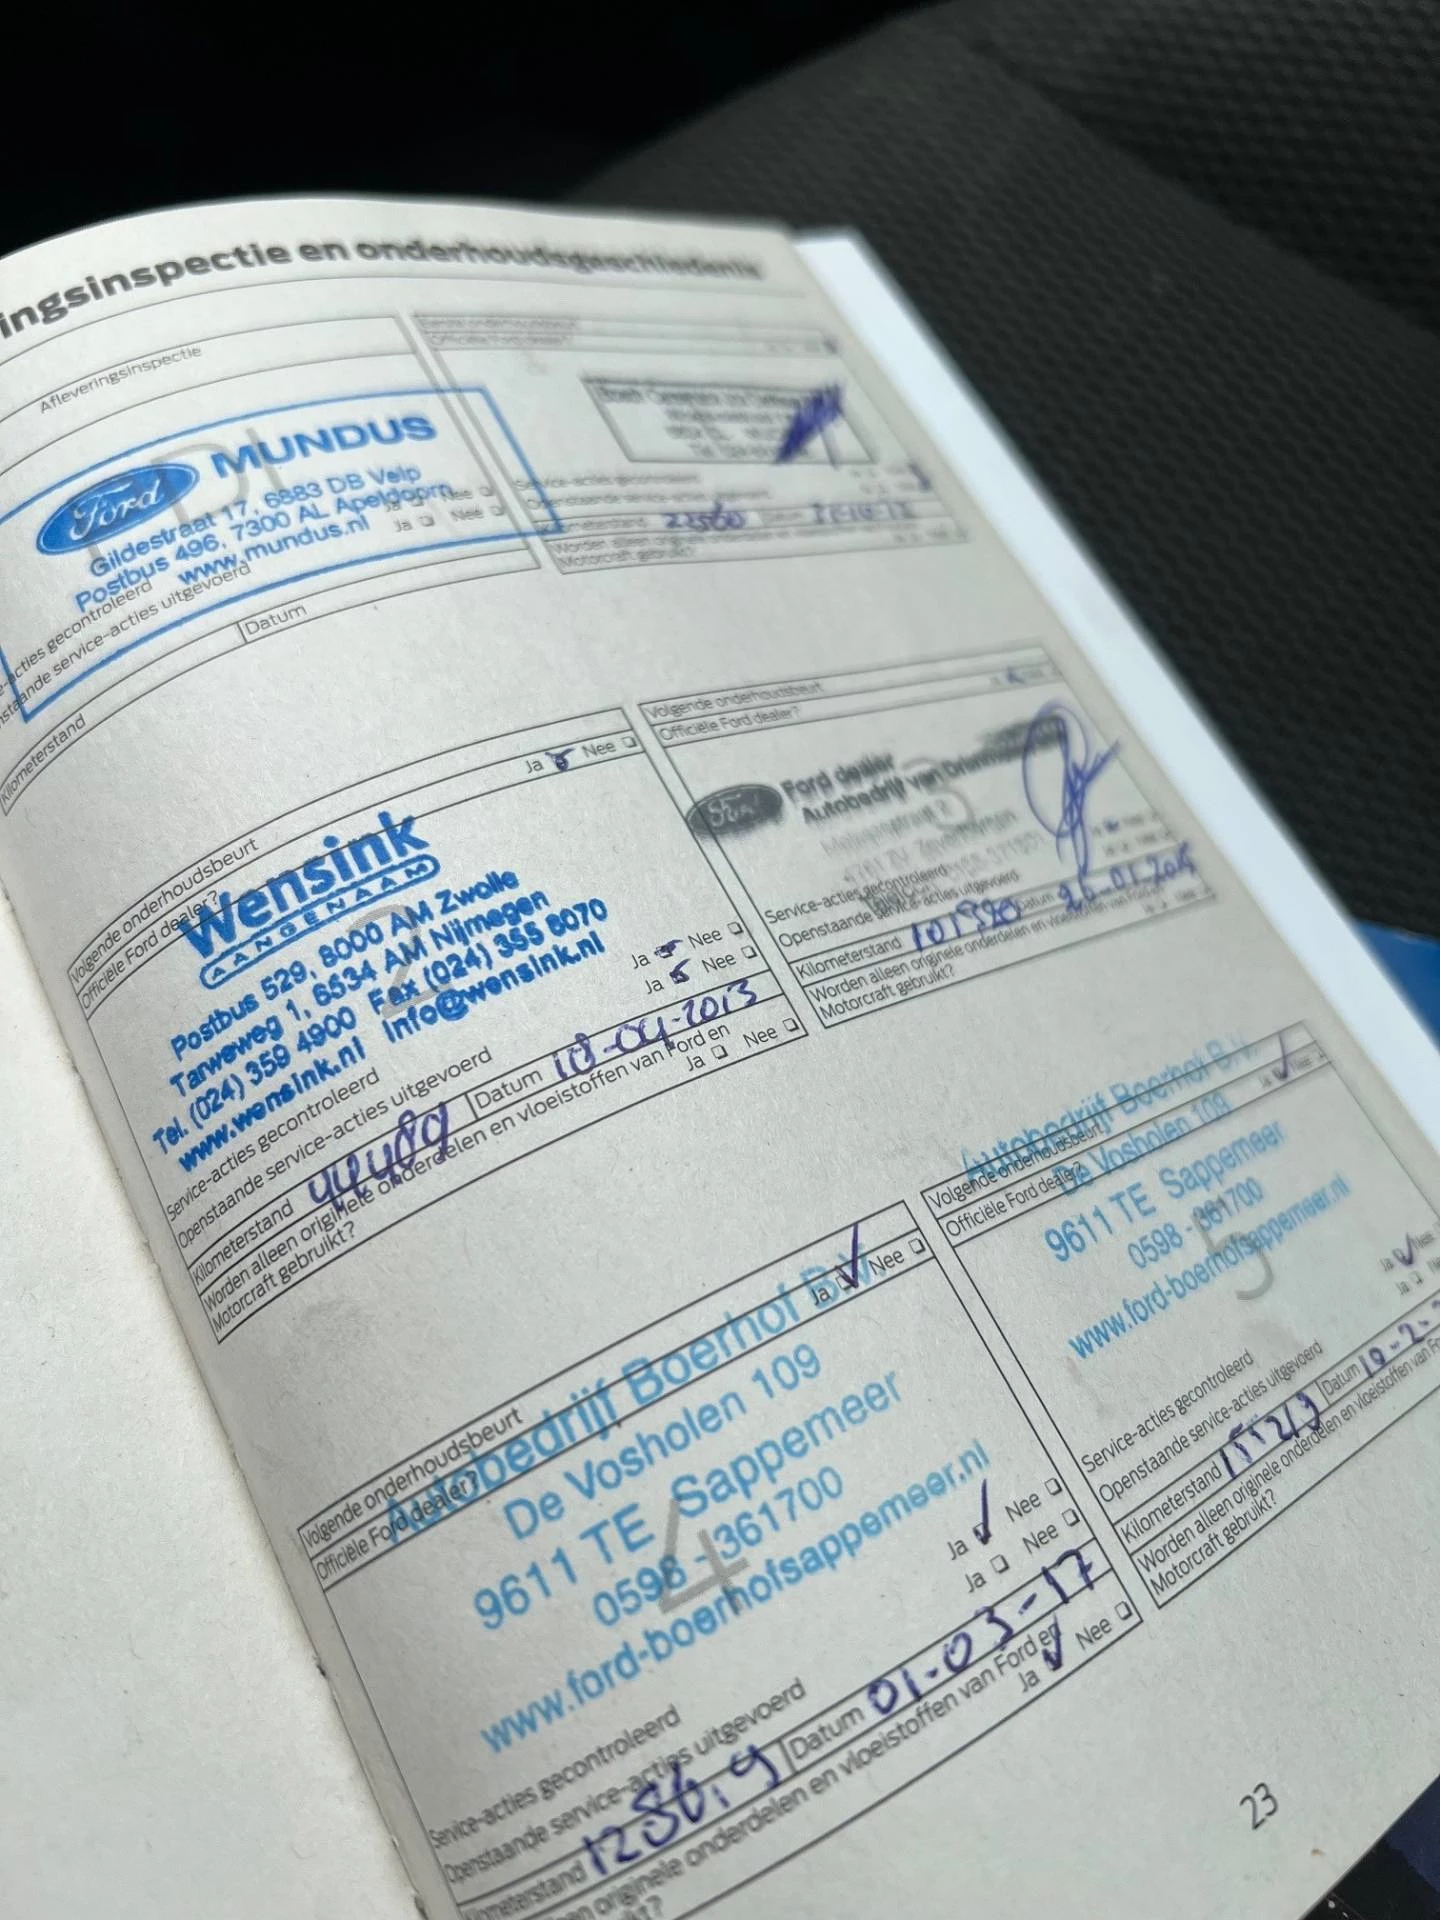 ingsinspectie en onderhoudsgeschiedenis
Afleveringsinspectie
Ford MUNDUS
Gildestraat 17, 6883 DB Velp
Postbus 496, 7300 AL Apeldoorn
www.mundus.nl
Ja Nee
Ja Nee
gecontroleerd
service-acties uitgevoerd
Kilometerstand
Datum
Officiële Ford dealer?
Service-acties gecontroleerd
Openstaande service-acties uitgevoerd
Kilometerstand
Worden alleen originele onderdelen en vloeistoffen van
Motorcraft gebruikt?
Volgende onderhoudsbeurt
Officiële Ford dealer? Ja Nee
Wensink
AANGENAAM
2
Postbus 529, 8000 AM Zwolle
Tarweweg 1, 6534 AM Nijmegen
Tel. (024) 359 4900 Fax (024) 355 8070
www.wensink.nl info@wensink.nl
Service-acties gecontroleerd Ja Nee
Openstaande service-acties uitgevoerd Ja Nee
Kilometerstand 44489 Datum 18-04-2013
Worden alleen originele onderdelen en vloeistoffen van Ford en
Motorcraft gebruikt? Ja Nee
Volgende onderhoudsbeurt
Officiële Ford dealer?
3
Ford Ford dealer
Autobedrijf van
Service-acties gecontroleerd
Openstaande service-acties uitgevoerd
Kilometerstand 101980 Datum 20-01-2015
Worden alleen originele onderdelen en vloeistoffen van Ford en
Motorcraft gebruikt?
Volgende onderhoudsbeurt
Officiële Ford dealer? Ja Nee
Autobedrijf Boerhof B.V.
De Vosholen 109
9611 TE Sappemeer
0598 - 361700
www.ford-boerhofsappemeer.nl
4
Service-acties gecontroleerd Ja Nee
Openstaande service-acties uitgevoerd Ja Nee
Kilometerstand Datum 01-03-17
onderdelen en vloeistoffen van Ford en
Ja Nee
Volgende onderhoudsbeurt
Officiële Ford dealer? Ja Nee
Autobedrijf Boerhof B.V.
De Vosholen 109
9611 TE Sappemeer
0598 - 361700
www.ford-boerhofsappemeer.nl
5
Service-acties gecontroleerd Ja Nee
Openstaande service-acties uitgevoerd Ja
Kilometerstand 155213 Datum
Worden alleen originele onderdelen en vloeistoffen van
Motorcraft gebruikt?
23